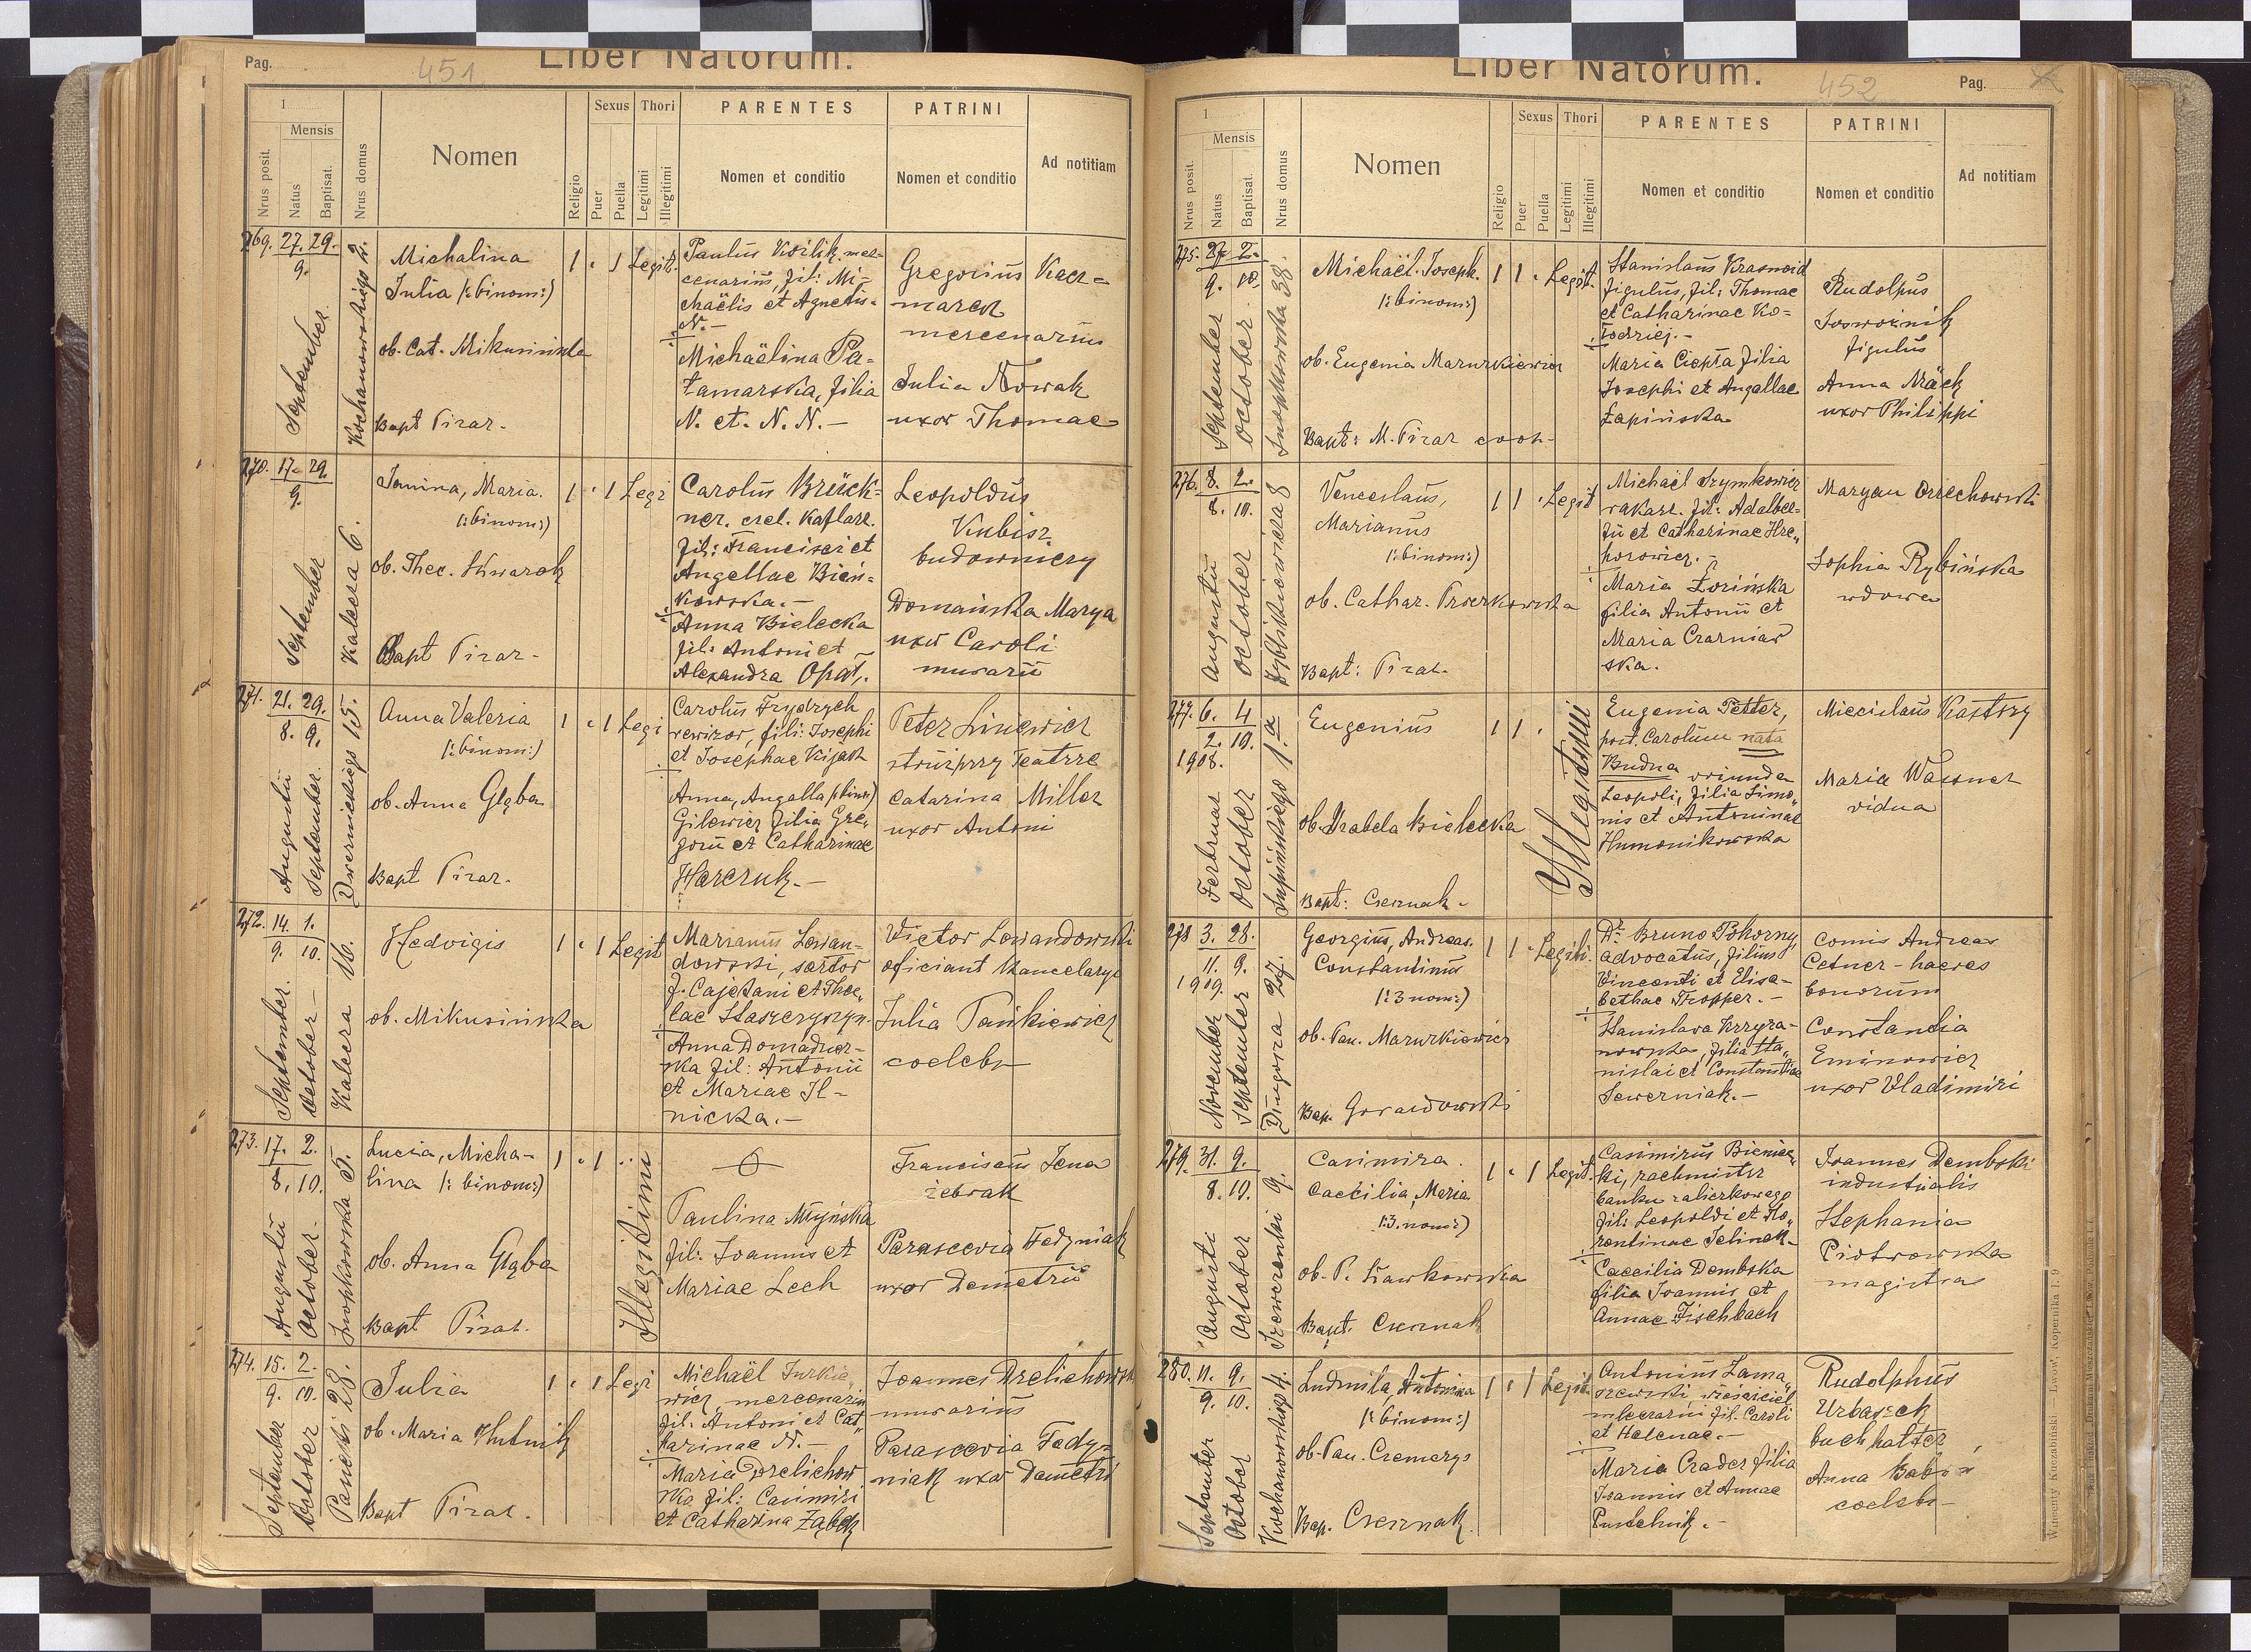 Pag.
451
Liber Natorum.
1
Nrus posit.
Mensis
Natus
Baptisat.
Nrus domus
Nomen
Religio
Sexus
Puer
Puella
Thori
Legitimi
Illegitimi
PARENTES
Nomen et conditio
PATRINI
Nomen et conditio
Ad notitiam
269. 27. 29.
9.
September
Kochanowskiego 2.
Michalina
Julia /:binom:)
ob. Cat. Mikusińska
Bapt Pizar.
1 . 1 Legit.
Paulus Koźlik mer-
cenarius, fil: Mi-
chaëlis et Agnetis
N. -
Michaëlina Pa-
łamarska, filia
N. et. N. N. -
Gregorius Kacz-
marek
mercenarius
Julia Nowak
uxor Thomae
270. 17. 29.
9.
September
Kalecza 6.
Janina, Maria.
/:binom:)
ob. Thec.
Bapt Pizar -
1 . 1 Legi
Carolus Brück-
ner. czel. kaflarz.
fil: Francisci et
Angellae Bień-
kowska. -
Anna Bielecka
fil: Antoni et
Alexandra Opat.
Leopoldus
Kubisz
budowniczy
Domańska Marya
uxor Caroli
murarii
271. 21. 29.
8. 9.
Augustii
September.
Dwernickiego 15.
Anna Valeria
/:binom:)
ob. Anna Głąba
Bapt Pizar.
1 . 1 Legi
Carolus Frydrych
rewizor, fili: Josephi
et Josephae Kijak
Anna, Angella /:binom:)
Gilewicz filia Gre,
gorii et Catharinae
Harczuk. -
Peter Linewicz
stróż przy Teatrze
Catarina Miller
uxor Antoni
272. 14. 1.
9. 10.
September.
October -
Kalecza 16.
Hedvigis
ob. Mikusińska
1 . 1 Legit
Marianus Lewan-
dowski, sartor
f. Cajetani et Thec,
lae
Anna
ka fil: Antonii
et Mariae Il-
nicka. -
Victor Lewandowski
oficiant kancelaryi
Julia Pańkiewicz
coelebs
273. 17. 2.
8. 10.
Augustii
October -
Snopkowska 5.
Lucia, Micha-
lina /: binom:)
ob. Anna Głąba
Bapt Pizar.
1 . 1
Illegitimi
Paulina Młyńska
fil: Joannis et
Mariae Lech
Franciscus Jena
żebrak
Parascevia Fedyniak
uxor Demetrii
274. 15. 2.
9. 10.
September
October
Panieńska 28.
Julia
ob. Maria Hutnik
Bapt Pizar.
1 . 1 Legi
Michaël Jurkie,
wicz, mercenarius
fil: Antoni et Cat,
tarinae N. -
Maria Drelichow
ka fil: Casimiri
et Catharina Ząbek
Joannes Drelichowski
murarius
Parascevia Fedy
niak uxor Demetri
Liber Natorum.
452
Pag.
1
Nrus posit.
Mensis
Natus
Baptisat.
Nrus domus
Nomen
Religio
Sexus
Puer
Puella
Thori
Legitimi
Illegitimi
PARENTES
Nomen et conditio
PATRINI
Nomen et conditio
Ad notitiam
275. 27. 2.
9. 10.
September
October
Snopkowska 38.
Michaël. Joseph.
/:binom:)
ob. Eugenia Mazurkiewicz
Bapt: M. Pizar coop.
1 1 . Legit.
Stanislaus Krasnoid
figulus, fil: Thomae
et Catharinae Ko-
łodziej. -
Maria Ciepła filia
Josephi et Angellae
Łapińska
Rudolfus
Jaswoźnik
figulus
Anna Mäck
uxor Philippi
276. 8. 2.
8. 10.
Augustii
October
Zyblikiewicza 8
Venceslaus,
Marianus
/:binom:)
ob. Cathar.
Bapt: Pizar.
1 1 . Legit
Michael Szymkowicz
fil: Adalber-
tii et Catharinae Hre,,
horowicz. -
Maria Łozińska
filia Antonii et
Maria Czarniaw
ska.
Maryan Orzechowski
Sophia Rybińska
wdowa
277. 6. 4
2. 10.
1908.
October
Supińskiego 1. a
Eugenius
ob. Izabela Bielecka
Bapt: Czernak.
1 1 .
Illegitimi
Eugenia Petter,
post. Carolum nata
Budna oriunda
Leopoli, filia Simo,,
nis et Antoninae
Humonikowska
Miecislaus
Maria Wassner
vidua
278 3. 28.
11. 9.
1909.
November
September
Długosza 27.
Georgius, Andreas.
Constantinus
/:3 nom:)
ob. Pau. Mazurkiewicz
Bap.
1 1 . Legiti.
Dr. Bruno Pohorny
advocatus, filius
Vincenti et Elisa-
bethae Tropper. -
Stanislava Krzyża-
nowska, filia Sta,,
nislai et Constantiae
Sewerniak. -
Comis Andreas
Cetner - haeres
bonorum
Constantia
Eminowicz
uxor Vladimiri
279. 31. 9.
8. 10.
Augusti
October
9.
Casimira.
Caecilia, Maria
/:3. nom:)
ob. P. Sławkowska
Bapt. Czernak
1 . 1 Legit.
Casimirus Bieniec,,
ki, rachmistrz
banku zaliczkowego
fil: Leopoldi et Flo,,
rentinae Jelinek -
Caecilia Dembska
filia Joannis et
Annae Fischbach
Joannes Dembski
industrialis
Stephania
Piotrowska
magistra
280. 11. 9.
9. 10.
September
October
Kochanowskiego 4.
Ludmila, Antonina
/:binom:)
ob. Pau. Cremerys
Bap. Czernak.
1 . 1 Legit.
Antonius Lama,,
szewski właściciel
mleczarni fil. Caroli
et Helenae. -
Maria Crader filia
Joannis et Annae
Puschnik. -
Rudolphus
Urbaszek
buchhalter
Anna
coelebs -
Wincenty Kuczabiński. — Lwów, Kopernika l. 9